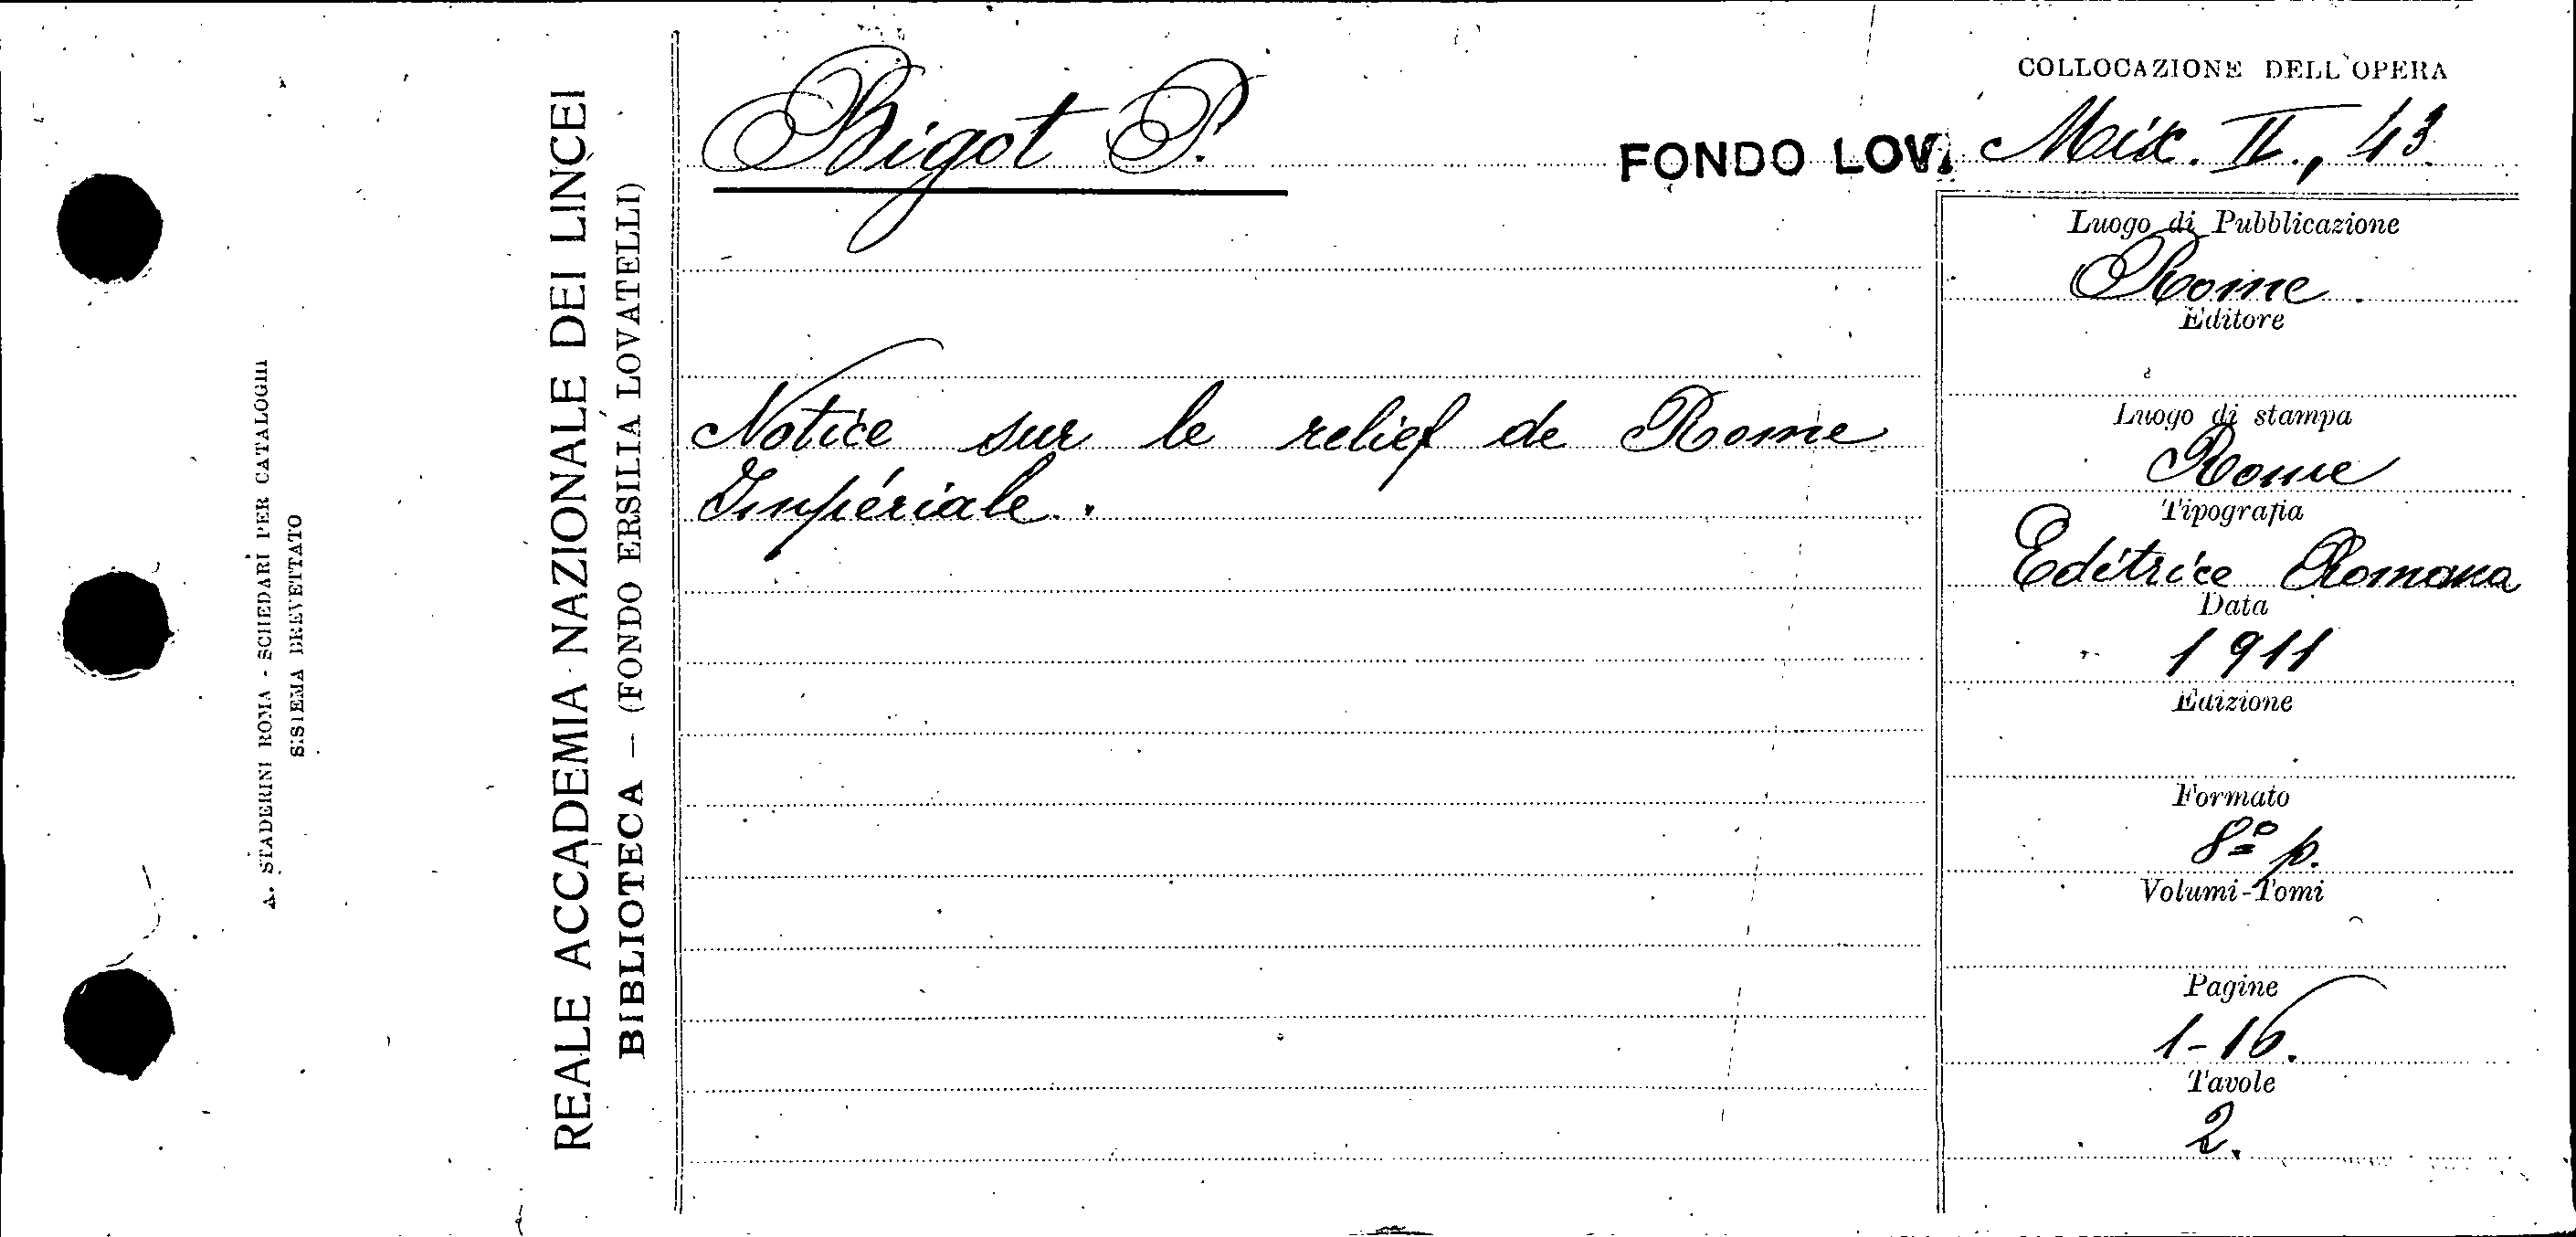 A. STADERINI ROMA - SCHEDARI PER CATALOGHI
SISTEMA BREVETTATO
REALE ACCADEMIA NAZIONALE DEI LINCEI
BIBLIOTECA — (FONDO ERSILIA LOVATELLI)
Bigot P.
Notice sur le relief de Rome
Impériale.
COLLOCAZIONE DELL'OPERA
FONDO LOV. Misc. II., 43.
Luogo di Pubblicazione
Rome
Editore
Luogo di stampa
Rome
Tipografia
Editrice Romana
Data
1911
Edizione
Formato
8º p.
Volumi-Tomi
Pagine
1-16.
Tavole
2.